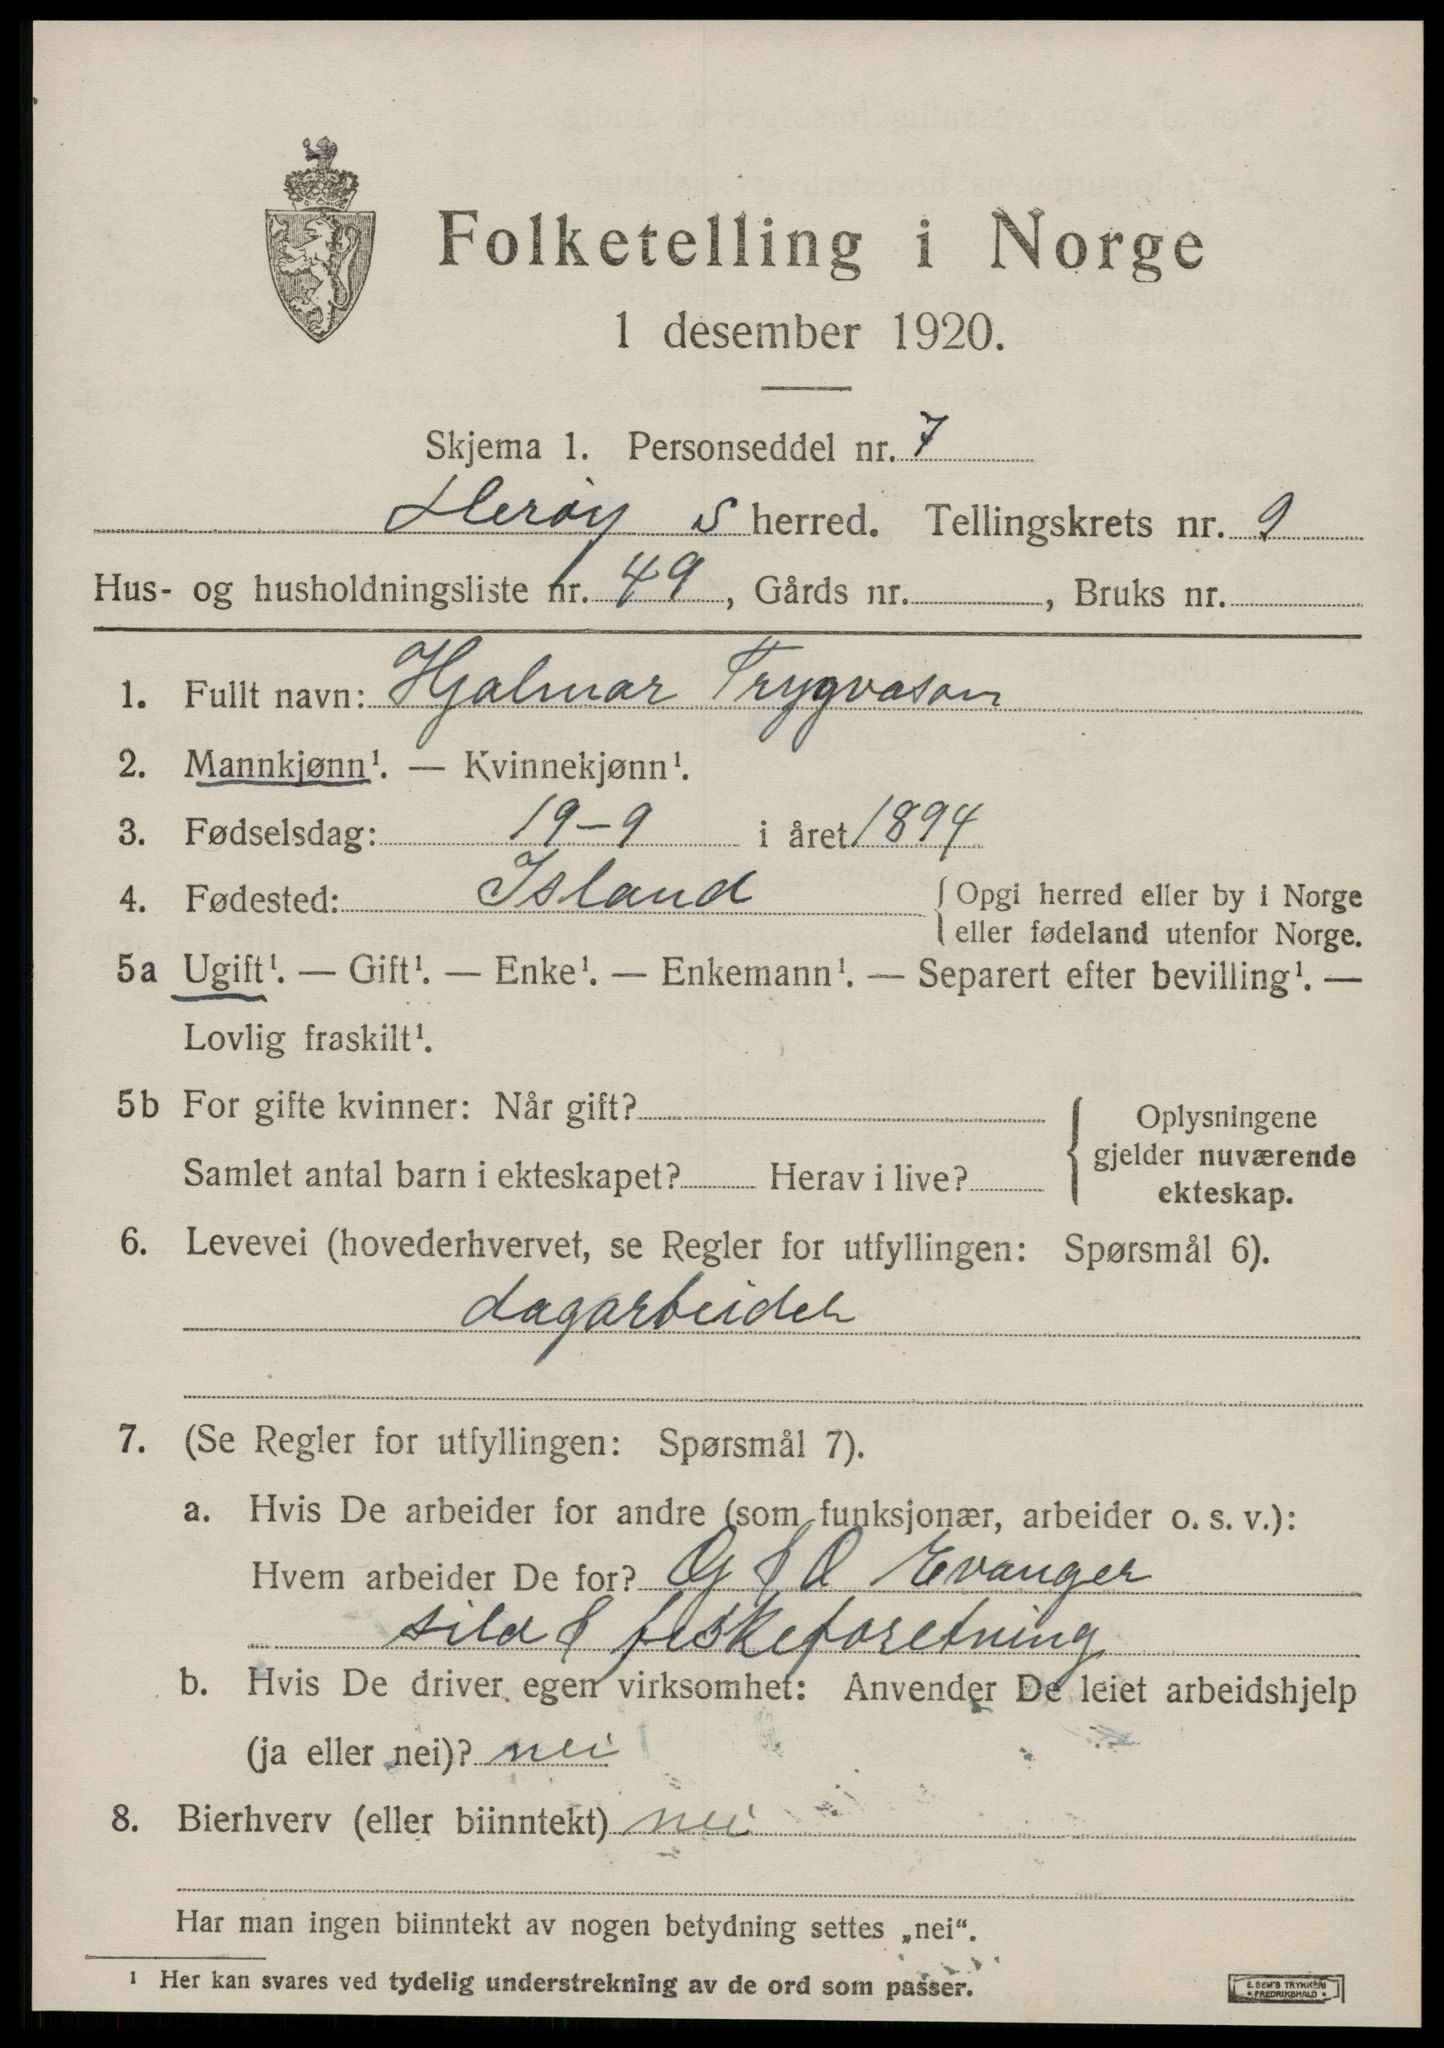 Folketelling i Norge
1 desember 1920.
Skjema 1. Personseddel nr. 7
Herøy s herred. Tellingskrets nr. 9
Hus- og husholdningsliste nr. 49, Gårds nr. , Bruks nr.
1. Fullt navn: Hjalmar Trygvason
2. Mannkjønn¹. — Kvinnekjønn¹.
3. Fødselsdag: 19-9 i året 1894
4. Fødested: Island { Opgi herred eller by i Norge
eller fødeland utenfor Norge.
5a Ugift¹. — Gift¹. — Enke¹. — Enkemann¹. — Separert efter bevilling¹. —
Lovlig fraskilt¹.
5b For gifte kvinner: Når gift?
Samlet antal barn i ekteskapet? Herav i live?
{ Oplysningene
gjelder nuværende
ekteskap.
6. Levevei (hovederhvervet, se Regler for utfyllingen: Spørsmål 6).
dagarbeider
7. (Se Regler for utfyllingen: Spørsmål 7).
a. Hvis De arbeider for andre (som funksjonær, arbeider o. s. v.):
Hvem arbeider De for? G & O Evanger
sild & fiskeforetning
b. Hvis De driver egen virksomhet: Anvender De leiet arbeidshjelp
(ja eller nei)? nei
8. Bierhverv (eller biinntekt) nei
Har man ingen biinntekt av nogen betydning settes „nei“.
¹ Her kan svares ved tydelig understrekning av de ord som passer.
E. SEM'S TRYKKERI
• FREDRIKSHALD •